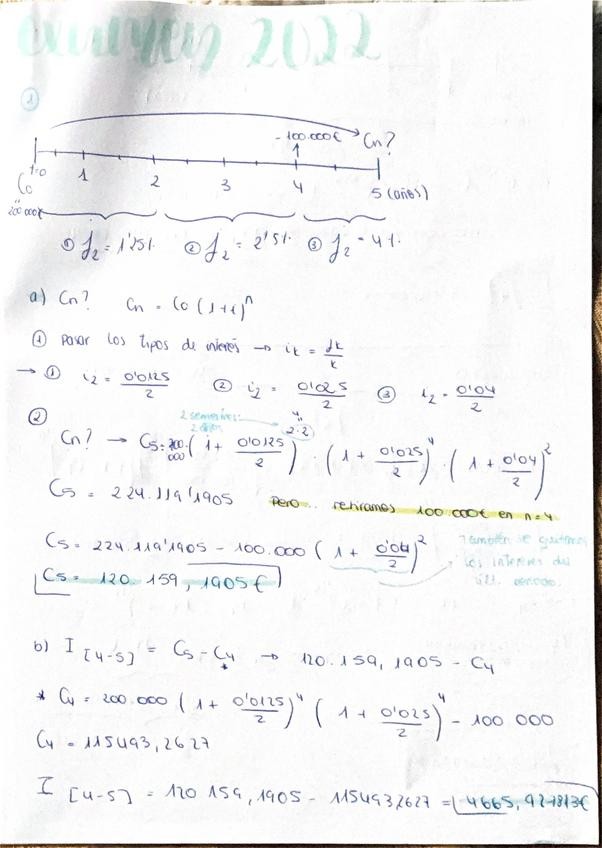 examen 2022
①
-100.000€ Cn?
t=0 1 2 3 4 5 (años)
Co
"
200 000€
① j₂ = 1'25% ② j₂ = 2'5% ③ j₂ = 4%
a) Cn? Cn = Co (1+i)ⁿ
① Pasar los tipos de interés → iₖ = jk/k
→ ① i₂ = 0'0125/2 ② i₂ = 0'025/2 ③ i₂ = 0'04/2
②
2 semestres
4
"
2·2
Cn? → C5 = 200.000 (1 + 0'0125/2) · (1 + 0'025/2)⁴ · (1 + 0'04/2)²
C5 = 224.119'1905 Pero... retiramos 100.000€ en n=4
C5 = 224.119'1905 - 100.000 (1 + 0'04/2)² También se quitamos
los intereses del
últ. periodo.
C5 = 120.159,1905€
b) I [4-5] = C5 - C4 → 120.159,1905 - C4
*
* C4 = 200.000 (1 + 0'0125/2)⁴ (1 + 0'025/2)⁴ - 100 000
C4 = 115493,2627
I [4-5] = 120 159,1905 - 115493,2627 = 4665,927813€